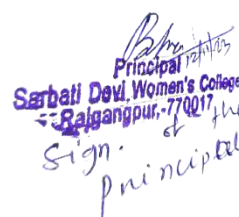 Principal 12/12/23
Sarbati Devi Women's College
Rajgangpur,-770017
Sign. of the
principal